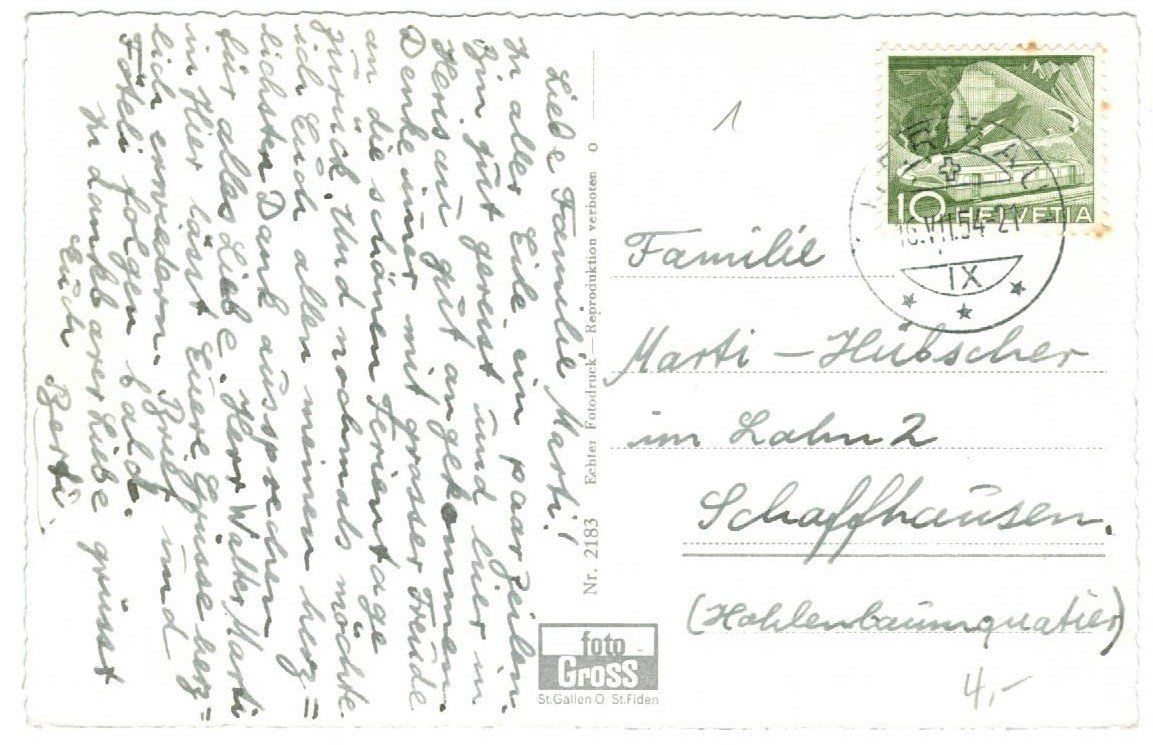 Liebe Familie Marti!
In aller Eile ein paar Zeilen.
Bin gut gereist und hier in
Herisau gut angekommen.
Denke immer mit grosser Freude
an die schönen Ferientage
zurück. Und nochmals möchte
ich Euch allen meinen herz=
lichsten Dank aussprechen
für alles Liebe. Herr Walter Marti
im Hier lässt Euere Grüsse herz=
lich erwiedern. Brief und
Föteli folgen bald.
In dankbarer Liebe grüsst
Euch
Berti.
Nr. 2183 Echter Fotodruck — Reproduktion verboten o
foto
Gross
St.Gallen O St.Fiden
1
10 HELVETIA
HERISAU
16.VII.54-21
IX
Familie
Marti – Hübscher
im Lahn 2
Schaffhausen.
(Hohlenbaumquatier)
4,-